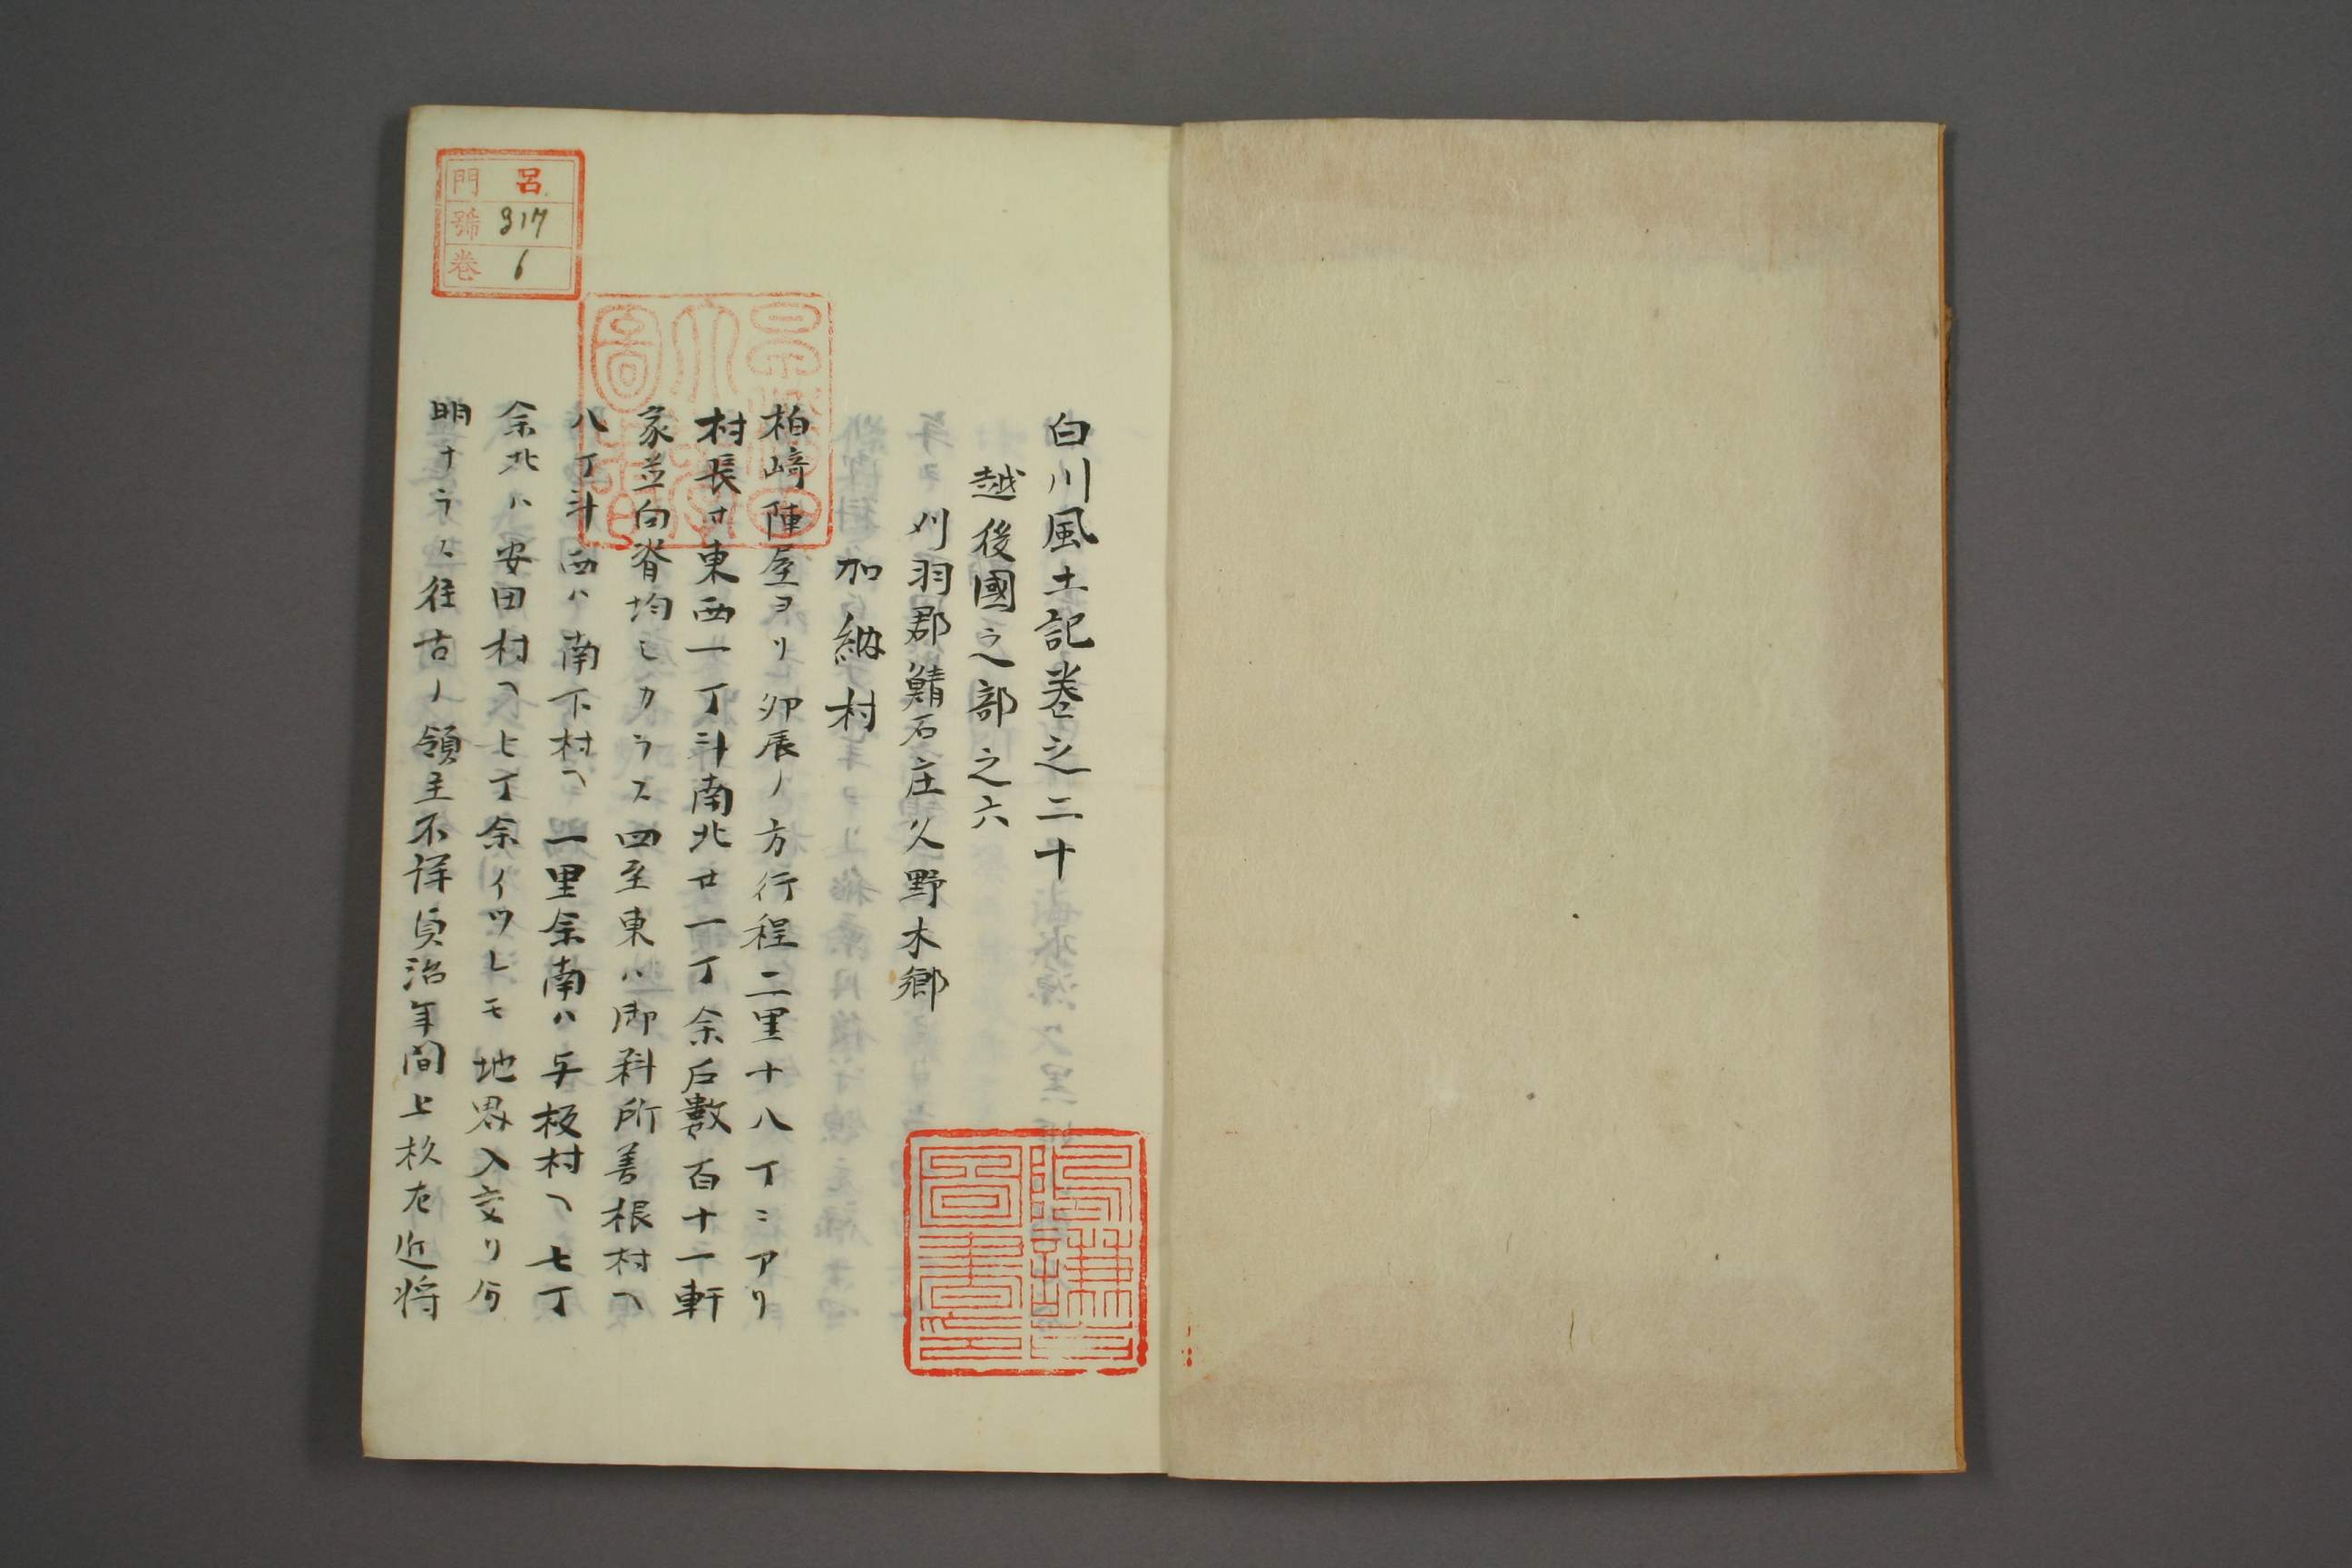 白川風土記巻之二十
越後國之部之六
刈羽郡鯖石庄久野木郷
加納村
柏﨑陣屋ヨリ卯辰ノ方行程二里十八丁ニアリ
村長サ東西一丁斗南北廿一丁余戸數百十一軒
家並向背均シカラス四至東ハ御料所善根村ヘ
八丁斗西ハ南下村ヘ一里余南ハ与板村ヘ七丁
余北ハ安田村ヘ七丁余イツレモ地界入交リ分
明ナラス往古ノ領主不詳貞治年間上杦左近将
門 呂
號 317
巻 6